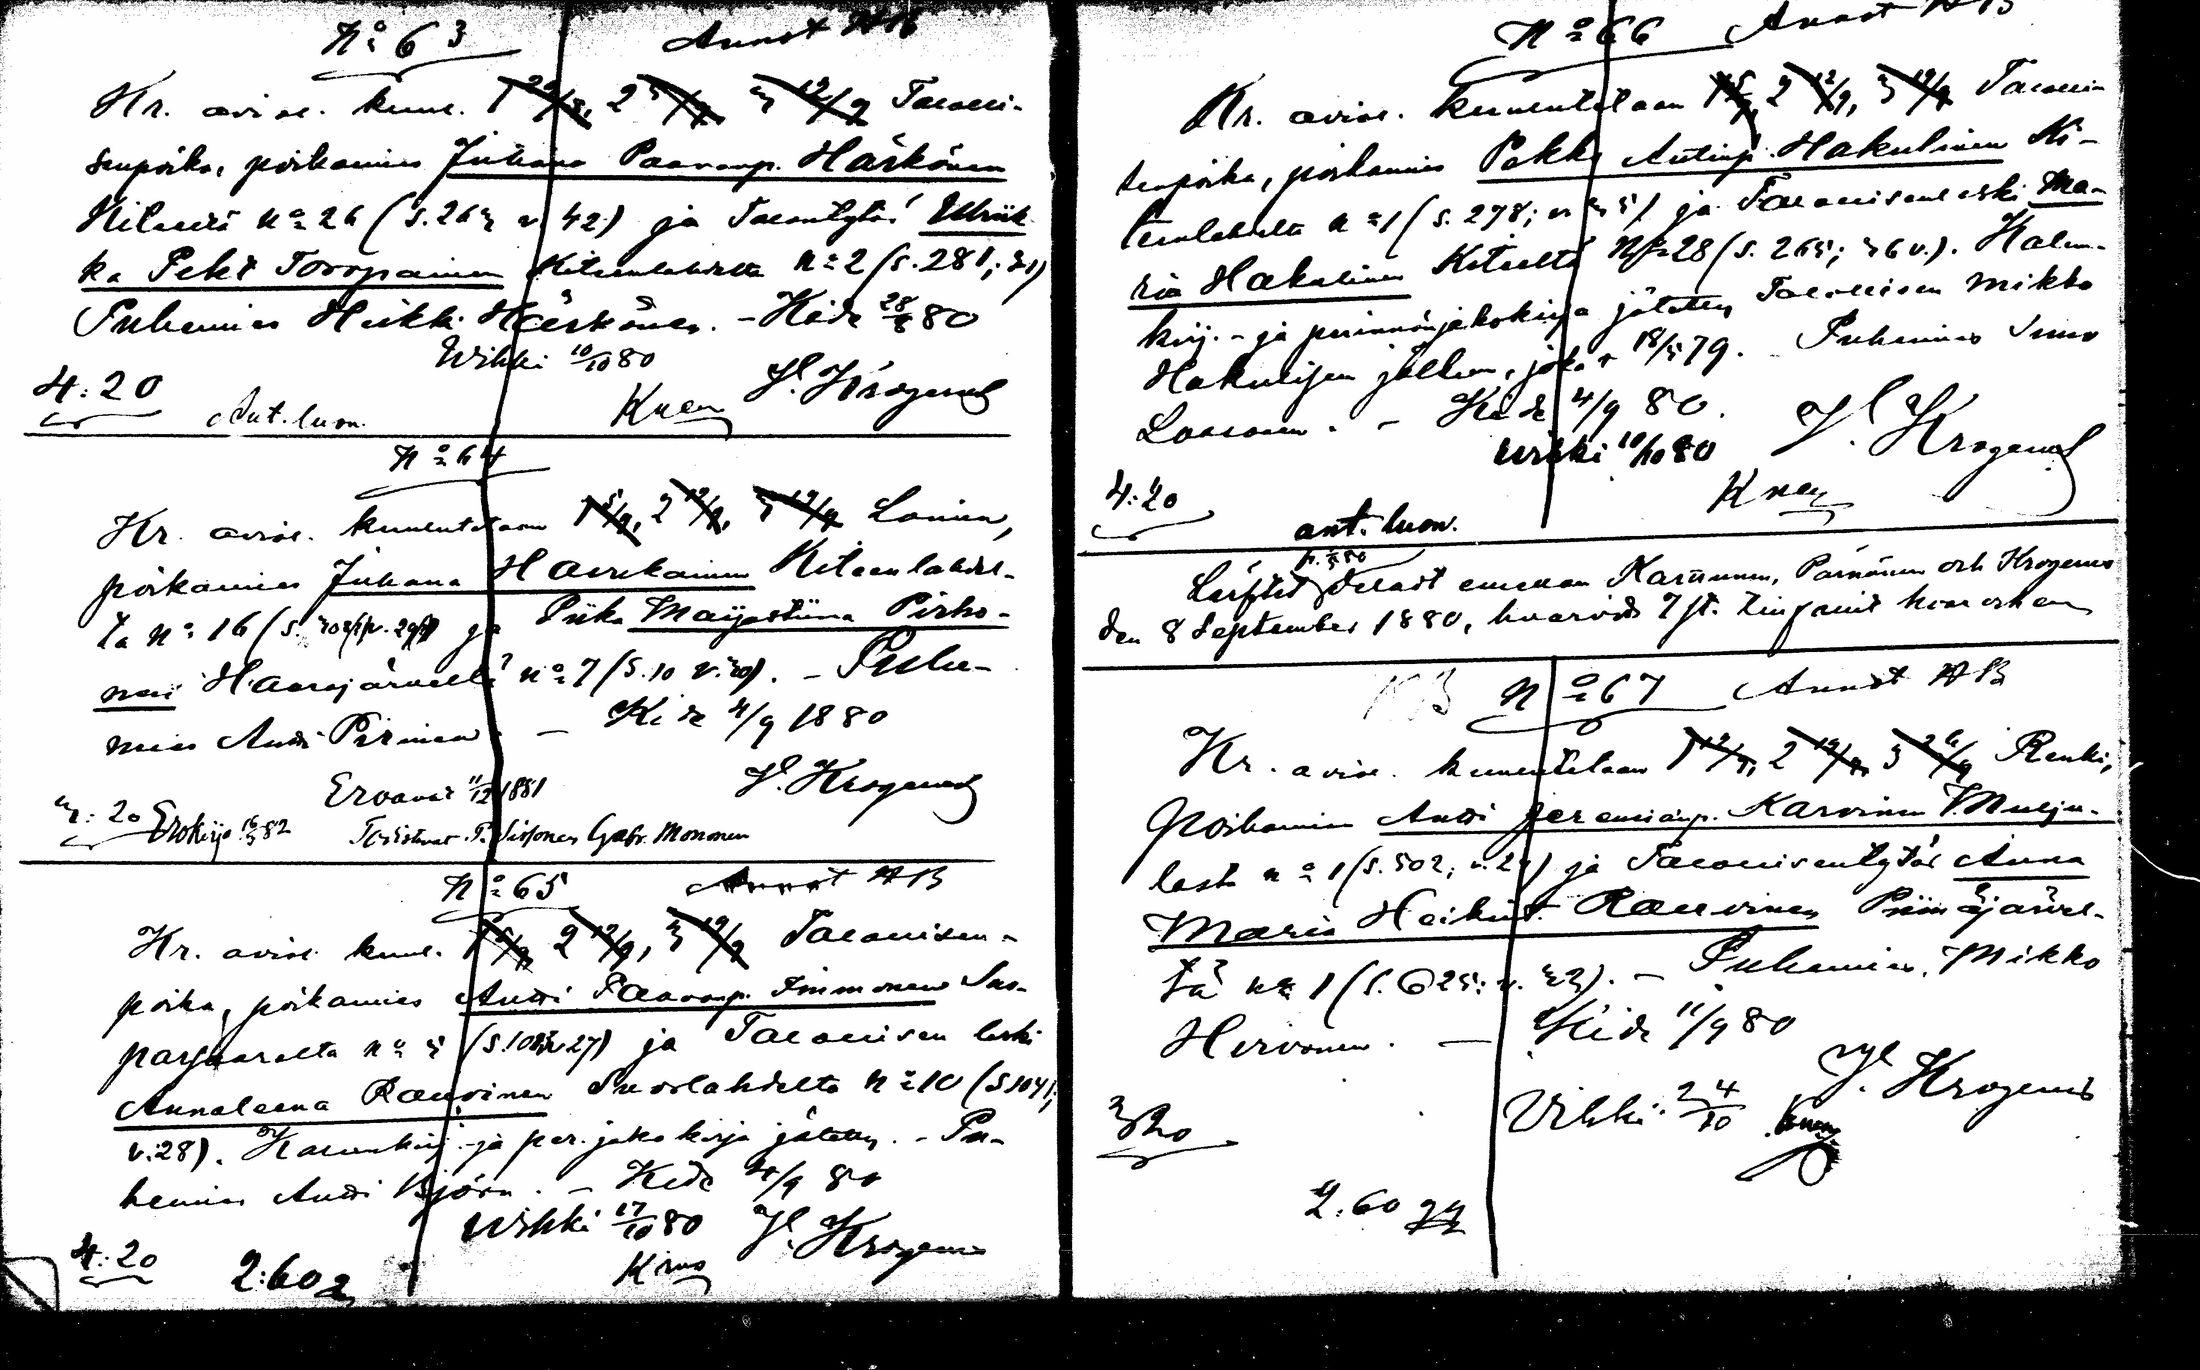 No 63 Annot AB
Hr. aviol. kuul. 1 29/8, 2 5/9, 3 12/9 Talolli-
senpoika, poikamies Juhana Paavonp. Härkönen
Kiteeltä No 26 (S. 263 v. 42) ja Talontytär Ulriik-
ka Pekt Toropainen Kiteenlahdelta No 2 (S. 281; 31)
Puhemies Heikki Härkönen. - Kide 28/8 80
Wihki 10/10 80
4:20 Ant. luon. Knen J. Krogerus
No 64
Hr. aviol. kuulutetaan 1 5/9, 2 12/9, 3 19/9 Loinen,
poikamies Juhana Haurukainen Kiteenlahdel-
ta No 16 (S. v. ) ja Piika Maijastiina Pirho-
nen Haarajärveltä No 7 (S. 10 v. 20). - Puhe-
mies Antti Pirinen. - Kide 4/9 1880
Eroavat 11/12 1881 J. Krogerus
3:20 Erokirja 16/3 82 Todistavat P. Sissonen Gabr. Mononen
No 65 Annot AB
Hr. aviol. kuul. 1 5/9, 2 12/9, 3 19/9 Talollisen-
poika, poikamies Antti Paavonp. Immonen Suo-
parsaaralta No 5 (S. v. 27) ja Talollisen leski
Annaleena Rauvinen Suorlahdelta No 10 (S 1041;
v. 28). Kalunkirj.- ja per. jakokirja jätetty. - Pu-
hemies Antti Björn. - Kide 4/9 80
Wihki 17/10 80 J. Krogerus
4:20 2:60 Knen
No 66 Annot AB
Hr. aviol. kuulutetaan 1 5/9, 2 12/9, 3 19/9 Talolli-
senpoika, poikamies Pekka Antinp. Hakulinen Ki-
teenlahdelta No 1 (S. 278; v. 35) ja Talollisenleski Ma-
ria Hakulinen Kiteeltä No 28 (S. 265; 36 v.). Kalun-
kirj.- ja perinnönjakokirja jätetty Talollisen Mikko
Hakulisen jälkeen, joka 18/5 79. Puhemies Simo
Laasonen. - Kide 4/9 80. J. Krogerus
Wihki 10/10 80
4:20 Knen
ant. luon.
Lärftet deladt emellan Karnunen, Parnänen och Krogerus
den 8 September 1880, hvarvid 7 st. tillföll hvar och en
No 67 Annot AB
Hr. aviol. kuulutetaan 1 12/9, 2 19/9, 3 26/9 Renki,
Poikamies Antti Jeremianp. Karvinen V. Mulju-
lasta No 1 (S. 502; v. 29) ja Talollisentytär Anna
Maria Heikint. Rauvinen Piimäjärvel-
tä No 1 (S. 625; v. 22). - Puhemies, Mikko
Hirvonen. - Kide 11/9 80
J. Krogerus
Vihki 24/10 Knen
3:20
2:60